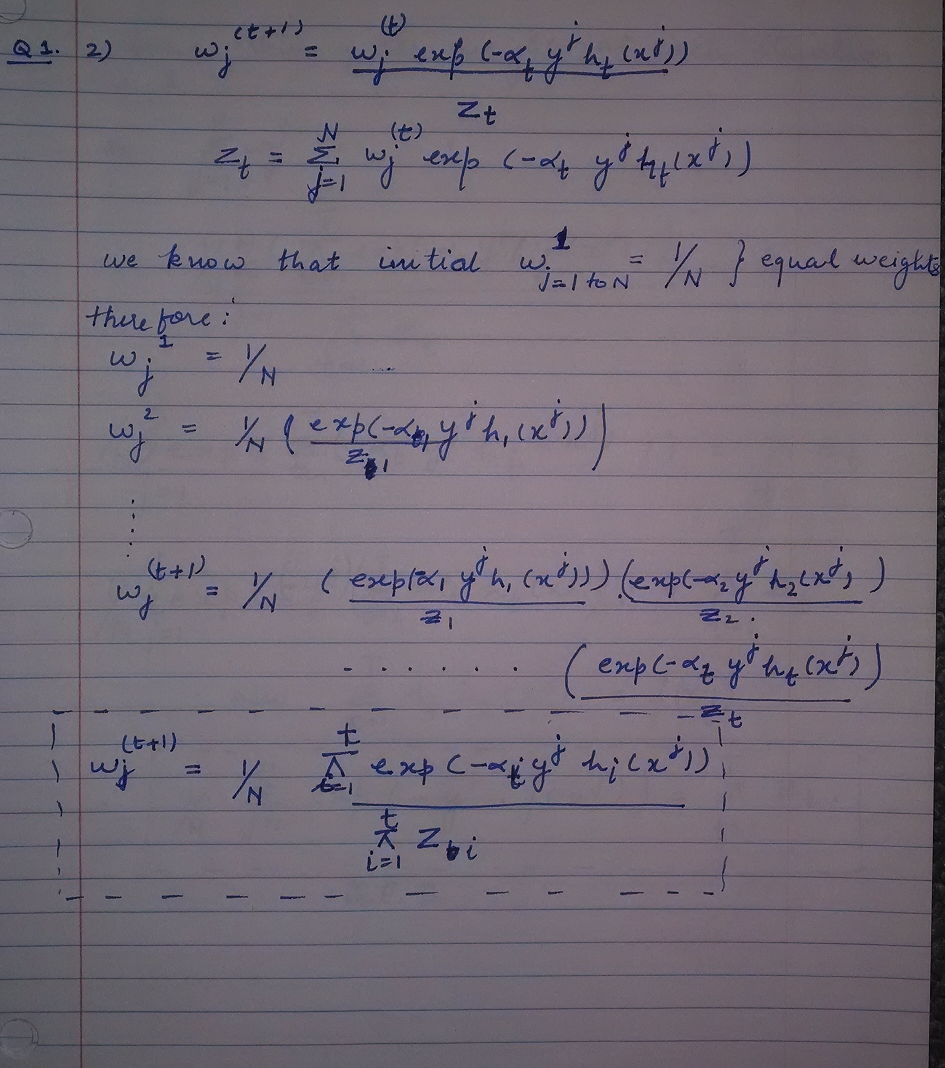 Q1. 2) w_j^(t+1) = w_j^(t) exp (-α_t y^j h_t (x^j))
Z_t
Z_t = Σ_{j=1}^{N} w_j^(t) exp (-α_t y^j h_t (x^j))
we know that initial w^1_{j=1 to N} = 1/N } equal weights
therefore:
w_j^1 = 1/N
w_j^2 = 1/N ( exp(-α_1 y^j h_1 (x^j)) / Z_1 )
w_j^(t+1) = 1/N ( exp(-α_1 y^j h_1 (x^j)) ) / Z_1 . ( exp(-α_2 y^j h_2 (x^j) ) / Z_2 .
. . . . . . ( exp(-α_t y^j h_t (x^j) ) / Z_t
w_j^(t+1) = 1/N π_{i=1}^{t} exp (-α_i y^j h_i (x^j))
π_{i=1}^{t} Z_i